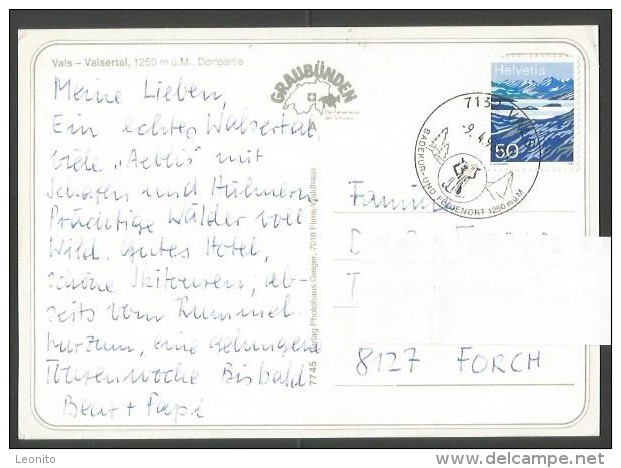 Vals – Valsertal, 1250 m ü.M., Dorfpartie
GRAUBÜNDEN
Die Ferienecke
der Schweiz
Helvetia
50
7132 VALS
-9. 4. 9
BADEKUR- UND FERIENORT 1250 m ü.M
Meine Lieben,
Ein echtes Walsertal,
viele „Aeblis" mit
Schafen und Hühnern
Prächtige Wälder voll
Wild. Gutes Hotel,
schöne Skitouren, ab-
seits vom Rummel.
Kurzum, eine gelungene
Tourenwoche Bisbald
Beat + Papi
7745 Verlag Photohaus Geiger, 7018 Flims-Waldhaus
Familie
8127 FORCH
Leonito
www.delcampe.net